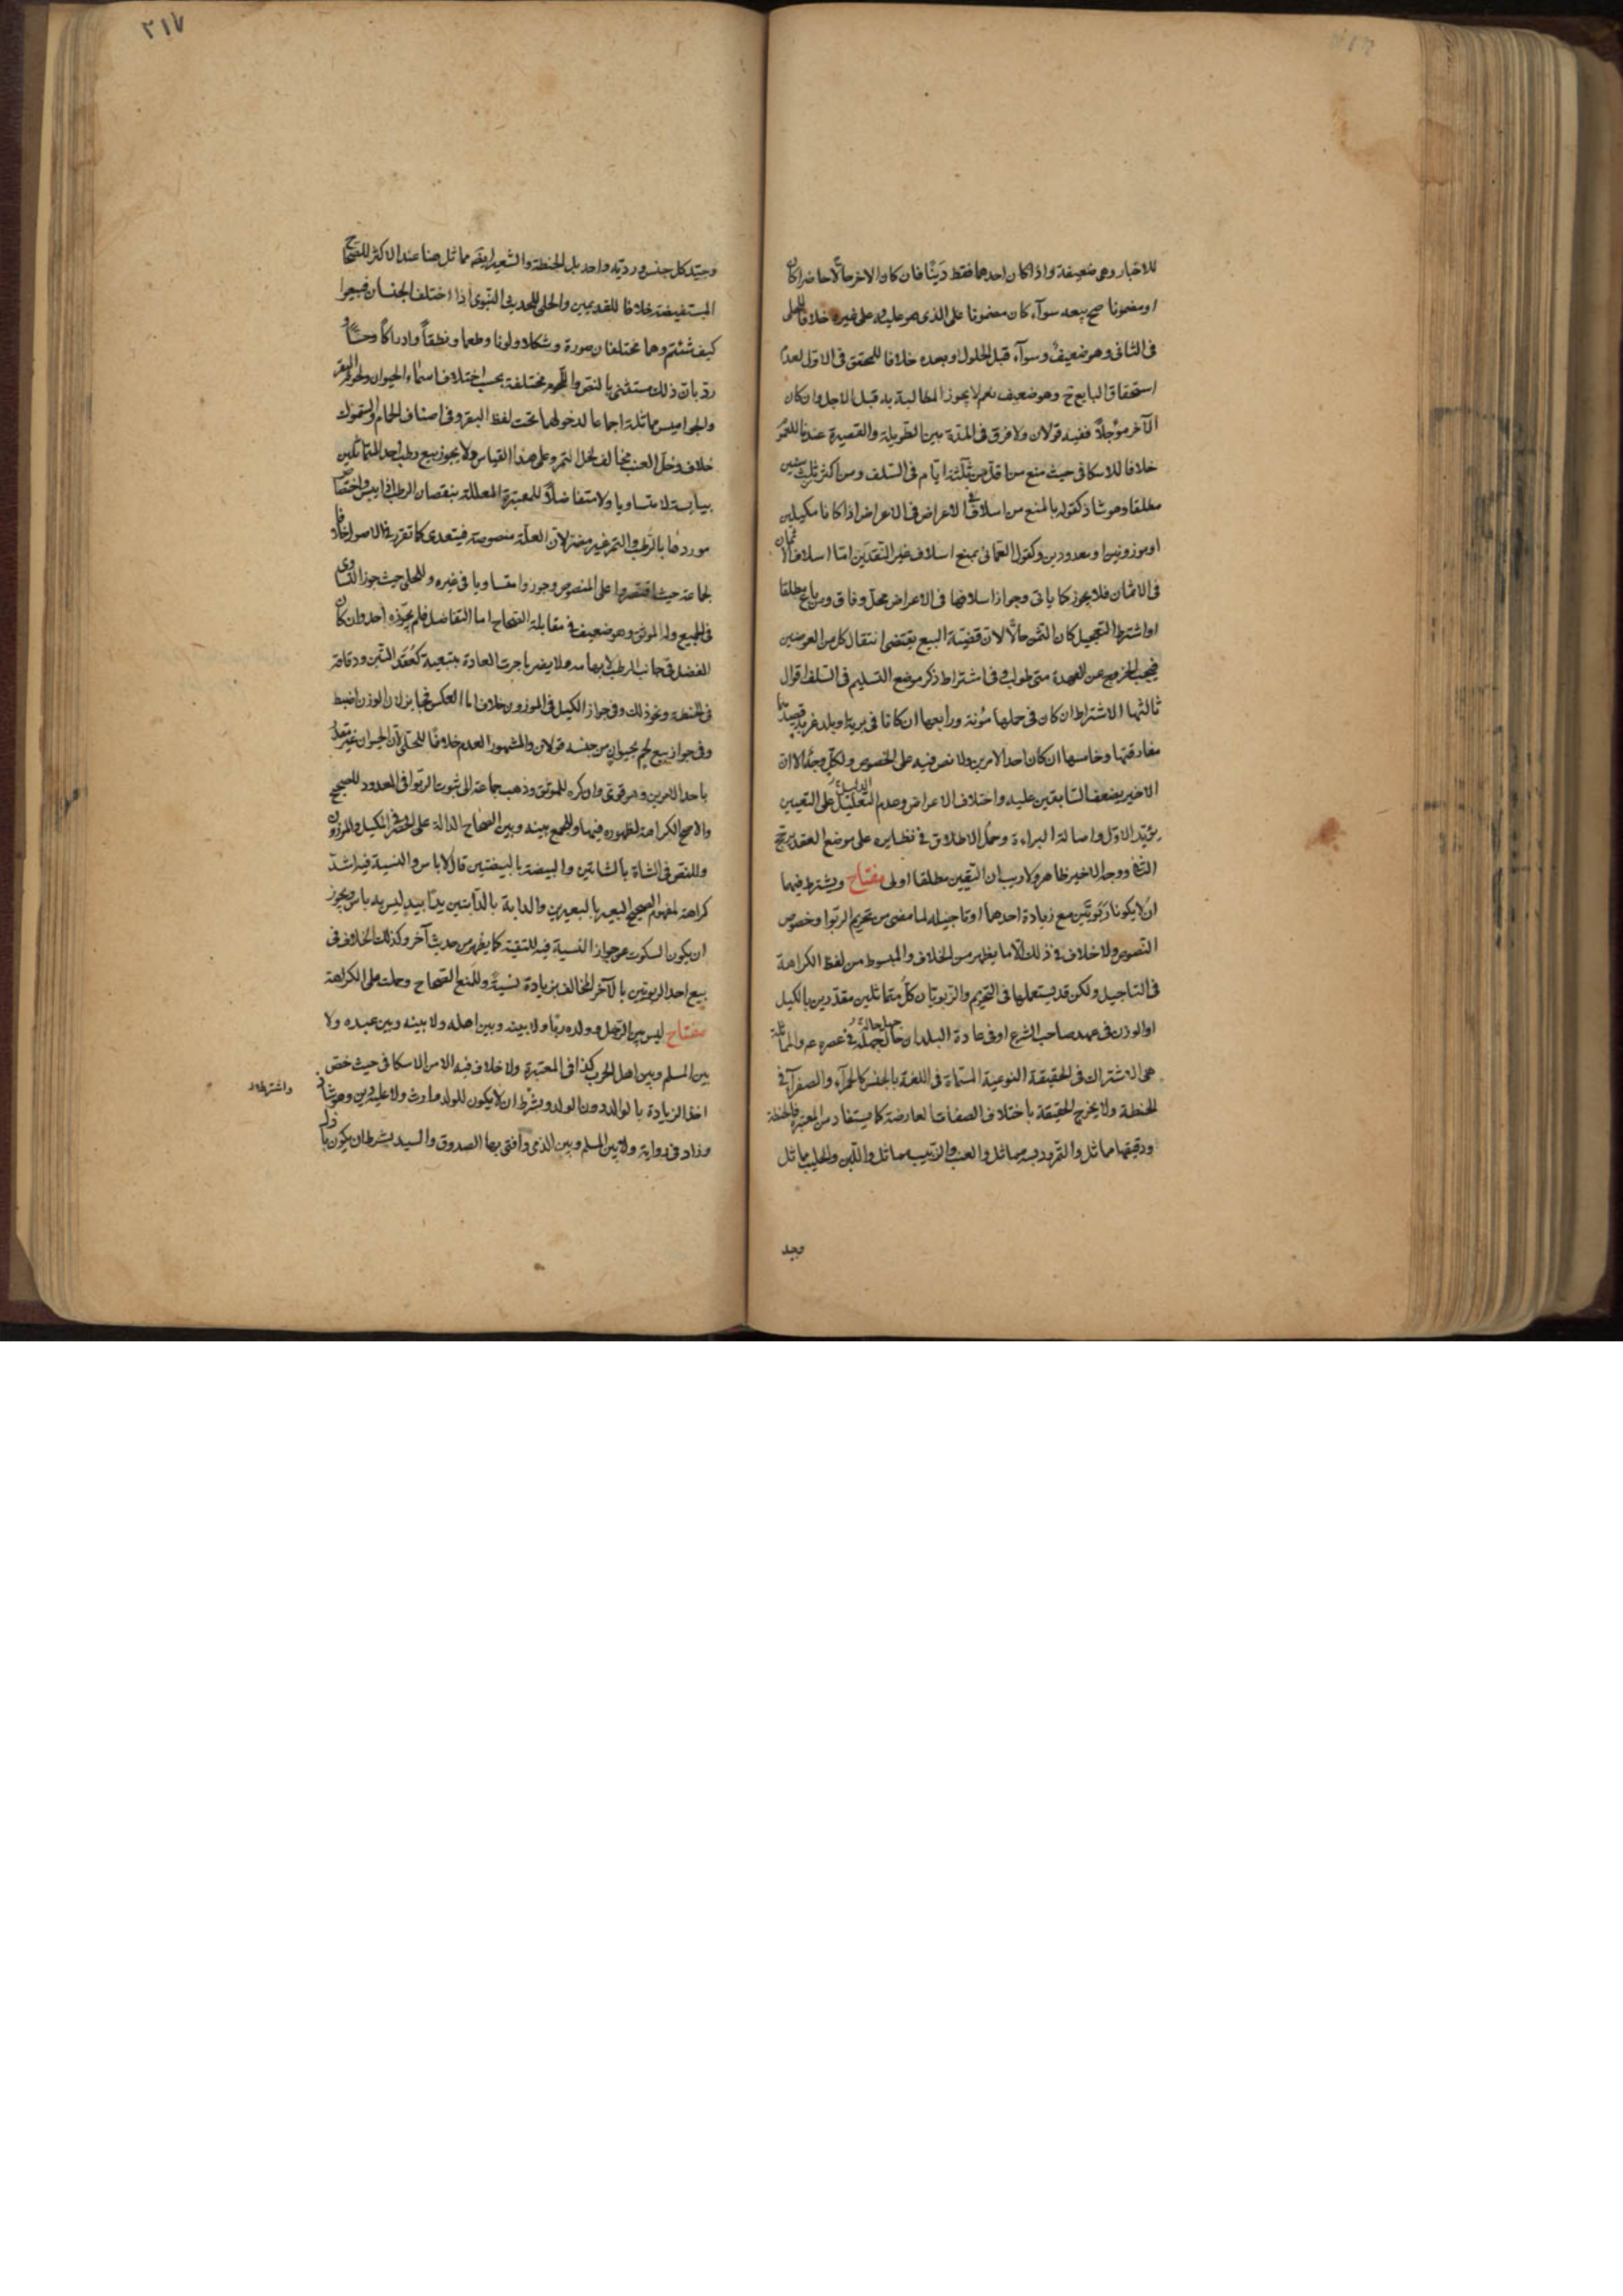 للاخبار وهى ضعيفة واذا كان احدهما فقط دَيْنًا فان كان الاخر حالًّا حاضرا كان
او مضمونا صح بيعه سوآء كان مضمونا على الذى هو عليه او على غيره خلافا للحلى
فى الثانى وهو ضعيف وسوآء قبل الحلول او بعده خلافا للمحقق فى الاول لعدم
استحقاق البايع ح وهو ضعيف نعم لا يجوز المطالبة به قبل الاجل وان كان
الآخر مؤجلاً ففيه قولان ولا فرق فى المدّة بين الطويلة والقصيرة عندنا للعموم
خلافا للاسكافى حيث منع من اقل من ثلثة ايّام فى السّلف ومن اكثر من ثلث سنين
مطلقا وهو شاذ كقوله بالمنع من اسلاف الاعراض فى الاعراض اذا كانا مكيلين
او موزونين او معدودين وكقول العمّانى بمنع اسلاف غير النّقدين امّا اسلاف الاثمان
فى الاثمان فلا يجوز كما ياتى وجواز اسلافها فى الاعراض محلّ وفاق ومن باع مطلقا
او اشترط التعجيل كان الثمن حالًّا لان قضيّة البيع يقتضى انتقال كل من العوضين
فيجب الخروج عن العهدة متى طولب وفى اشتراط ذكر موضع التسليم فى السّلف اقوال
ثالثها الاشتراط ان كان فى حملها مؤنة ورابعها ان كانا فى برية او بلد غربة قصدهما
مفارقتها وخامسها ان كان احد الامرين ولا نص فيه على الخصوص ولكلّ وجهٌ الا ان
الاخير يضعف السّابقين عليه واختلاف الاعراض وعدم الدليل على التعيين
يؤيّد الاوّل واصالة البراءة وحمل الاطلاق فى نظايره على موضع العقد يرجّح
الثانى ووجه الاخير ظاهر ولا ريب ان التعيين مطلقا اولى مفتاح ويشترط فيهما
ان لا يكونا ربويّين مع زيادة احدهما او تاجيله لما مضى من تحريم الربوا وخصوص
النّصوص ولا خلاف فى ذلك الّا ما يظهر من الخلاف والمبسوط من لفظ الكراهة
فى التاجيل ولكن قد يستعملها فى التحريم والرّبويّان كلّ متماثلين مقدّرين بالكيل
او الوزن فى عهد صاحب الشرع او فى عادة البلدان حال جهل حاله فى عصره عم والمماثلة
هى الاشتراك فى الحقيقة النوعية المسمّاة فى اللغة بالجنس كالحمرآء والصفرآء فى
الحنطة ولا يخرج الحقيقة باختلاف الصفات العارضة كما يستفاد من المعتبرة فالحنطة
ودقيقها مماثل والتمر ودبسه مماثل والعنب والزّبيب مماثل واللّبن والحليب مماثل
وجيد
٢١٧
وجيّد كل جنس ورديّه واحد بل الحنطة والشعير ايضَه مماثل هنا عند الاكثر للصحاح
المستفيضة خلافا للقديمين والحلى للحديث النّبوى اذا اختلف الجنسان فبيعوا
كيف شئتم وهما مختلفان صورة وشكلا ولونا وطعما ونطقاً وادراكاً وحسّاً و
ردّ بان ذلك مستثنى بالنص واللّحوم مختلفة بحسب اختلاف اسماء الحيوان ولحم البقر
والجواميس مماثلة اجماعا لدخولهما تحت لفظ البقر وفى اصناف الحمام والسّموك
خلاف وخلّ العنب مخالف لخل التمر وعلى هذا القياس ولا يجوز بيع رطب احد المتماثلين
بيابسة لا متساويا ولا متفاضلاً للمعتبرة المعللة بنقصان الرطب اذا يبس واختصاص
موردها بالرّطب والتمر غير مضر لان العلّة منصوصة فيتعدى كما تقرر فى الاصول خلافا
لجماعة حيث اقتصروا على المنصوص وجوزوا متساويا فى غيره وللحلى حيث جوز التساوى
فى الجميع وله الموثق وهو ضعيف فى مقابلة الصّحاح اما التفاضل فلم يجوّزه احد وان كان
الفضل فى جانب الرطب لابهامه ولا يضر ما جرت العادة بتبعية كعُقَد التّبن ودقاقه
فى الحنطة ونحو ذلك وفى جواز الكيل فى الموزون خلاف اما العكس فجايز لان الوزن اضبط
وفى جواز بيع لحم بحيوان من جنسه قولان والمشهور العدم خلافًا للحلّى لانّ الحيوان غير مقدّر
باحد الامرين وهو قوىّ وان كره للموثق وذهب جماعة الى ثبوت الربوا فى المعدود للصحيح
والاصح الكراهة لظهوره فيها وللجمع بينه وبين الصّحاح الدالة على الحصر فى المكيل والموزون
وللنّص فى الشاة بالشاتين والبيضة بالبيضتين قال لا باس والنسية فيه اشدّ
كراهة لمفهوم الصحيح البعير بالبعيرين والدابة بالدّابتين يدًا بيدٍ ليس به باس ويجوز
ان يكون السكوت عن جواز النّسية فيه للتقية كما يظهر من حديث آخر وكذلك الخلاف فى
بيع احد الربويّين بالآخر المخالف بزيادة نسيةً وللمنع الصّحاح وحملت على الكراهة
مفتاح ليس بين الرّجل وولده ربًا ولا بينه وبين اهله ولا بينه وبين عبده ولا
بين المسلم وبين اهل الحرب كذا فى المعتبرة ولا خلاف فيه الا من الاسكافى حيث خصّ
اخذ الزيادة بالوالد دون الولد وبشرط ان لا يكون للولد وارث ولا عليه دين وهو شاذ
وزاد فى رواية ولا بين المسلم وبين الذمى وافتى بها الصدوق والسيد بشرط ان يكون با